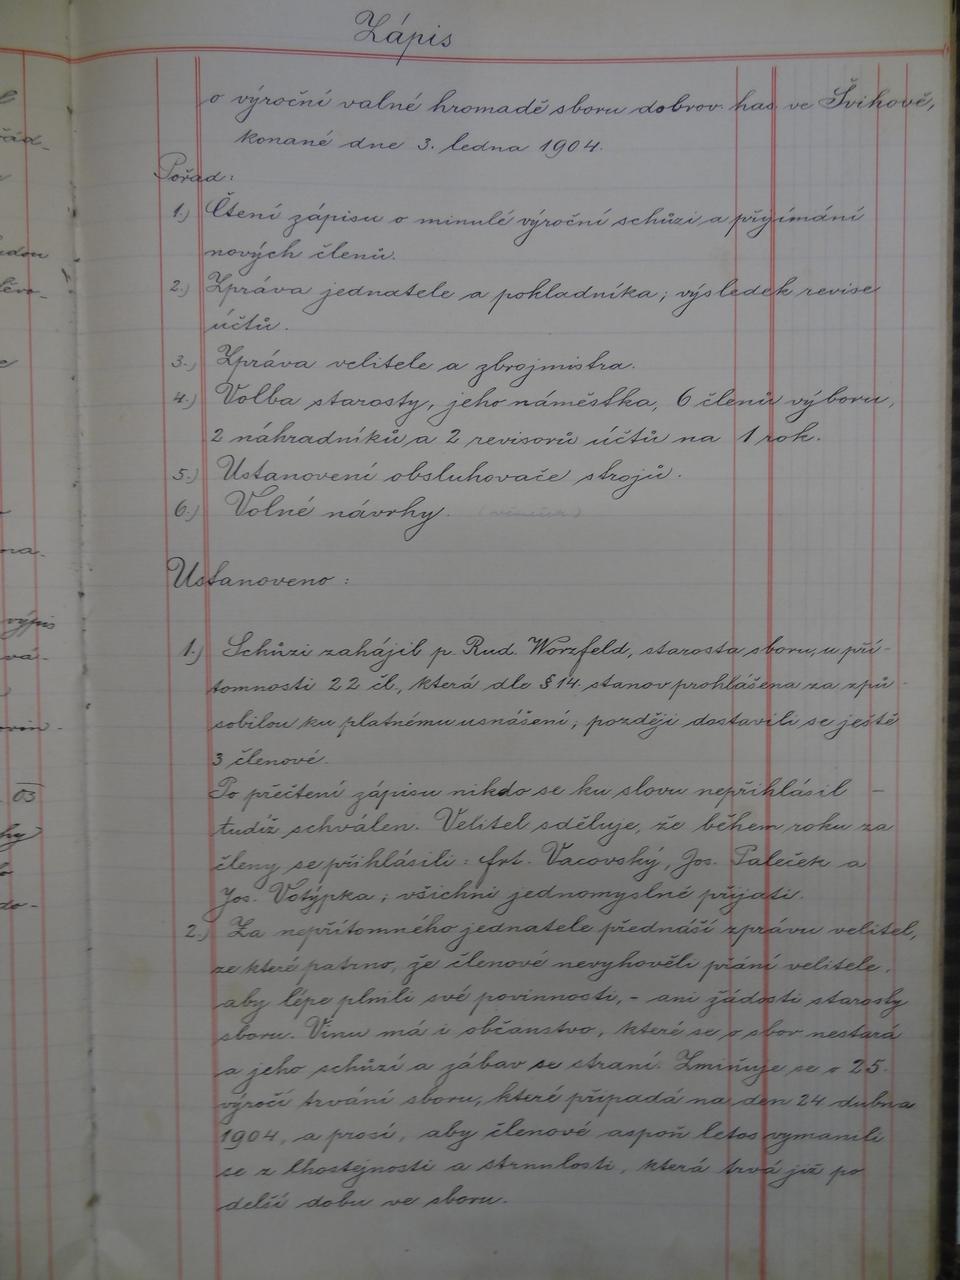 Zápis
o výroční valné hromadě sboru dobrov. has. ve Švihově,
konané dne 3. ledna 1904.
Pořad:
1.) Čtení zápisu o minulé výroční schůzi a přijímání
nových členů.
2.) Zpráva jednatele a pokladníka; výsledek revise
účtů.
3.) Zpráva velitele a zbrojmistra.
4.) Volba starosty, jeho náměstka, 6 členů výboru,
2 náhradníků a 2 revisorů účtů na 1 rok.
5.) Ustanovení obsluhovače strojů.
6.) Volné návrhy.
Ustanoveno:
1.) Schůzi zahájil p. Rud. Worzfeld, starosta sboru, u pří-
tomnosti 22 čl., která dle § 14. stanov prohlášena za způ-
sobilou ku platnému usnášení; později dostavili se ještě
3 členové.
Po přečtení zápisu nikdo se ku slovu nepřihlásil –
tudíž schválen. Velitel sděluje, že během roku za
členy se přihlásili: frt. Vacovský, Jos. Paleček a
Jos. Votýpka; všichni jednomyslně přijati.
2.) Za nepřítomného jednatele přednáší zprávu velitel,
ze které patrno, že členové nevyhověli přání velitele,
aby lépe plnili své povinnosti, – ani žádosti starosty
sboru. Vinu má i občanstvo, které se o sbor nestará
a jeho schůzí a zábav se straní. Zmiňuje se o 25.
výročí trvání sboru, které připadá na den 24 dubna
1904, a prosí, aby členové aspoň letos vymanili
se z lhostejnosti a strnulosti, která trvá již po
delší dobu ve sboru.
ová-
výpis
vá-
03
hy
do-